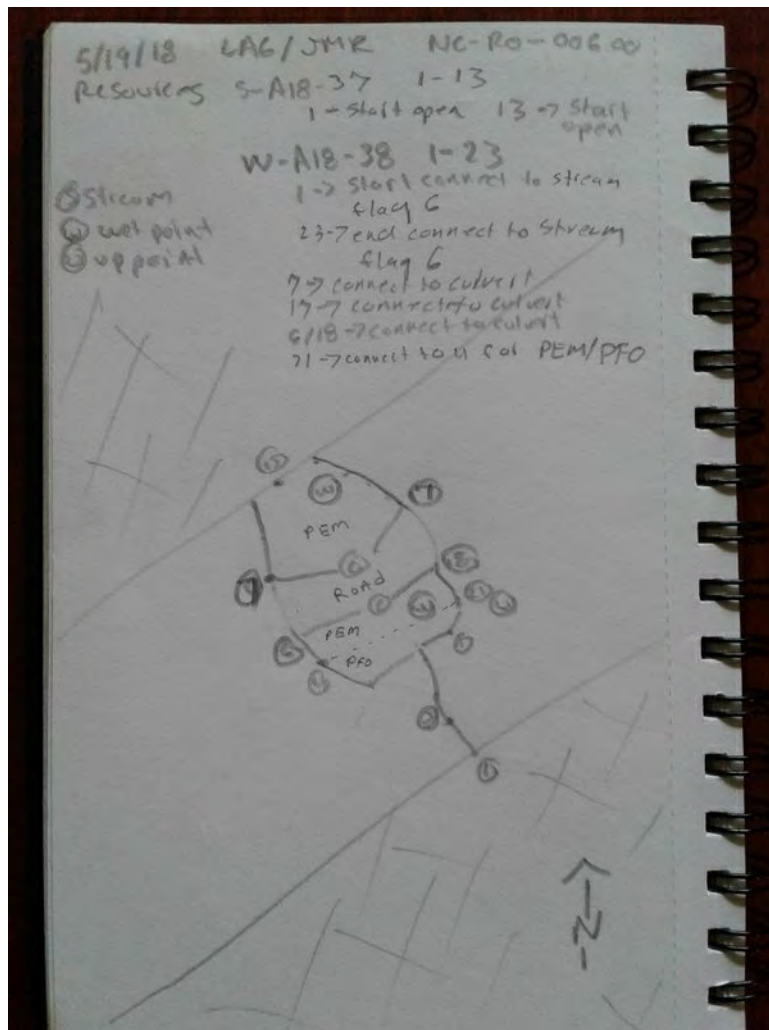 5/19/18 LAG/JMR NC-RO-006.00
Resources S-A18-37 1-13
1 - Start open 13 -> Start open
W-A18-38 1-23
1 -> Start connect to stream
flag 6
23 -> end connect to Stream
flag 6
7 -> connect to culvert
17 -> connect to culvert
6/18 -> connect to culvert
21 -> connect to 4 for PEM/PFO
S stream
W wet point
U up point
W
PEM
C
ROAD
C
W
PEM
PFO
N